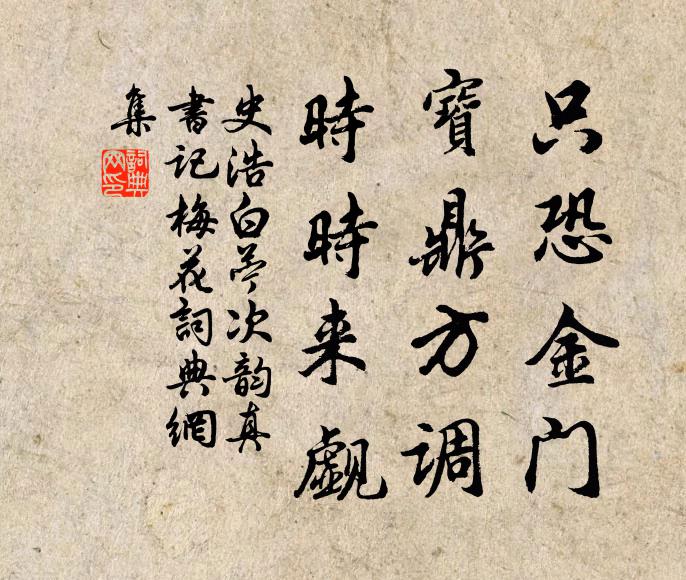 只恐金门
寶鼎方调
時時来覷
史浩白苎次韵真
書记梅花詞典網
集
詞典
网印